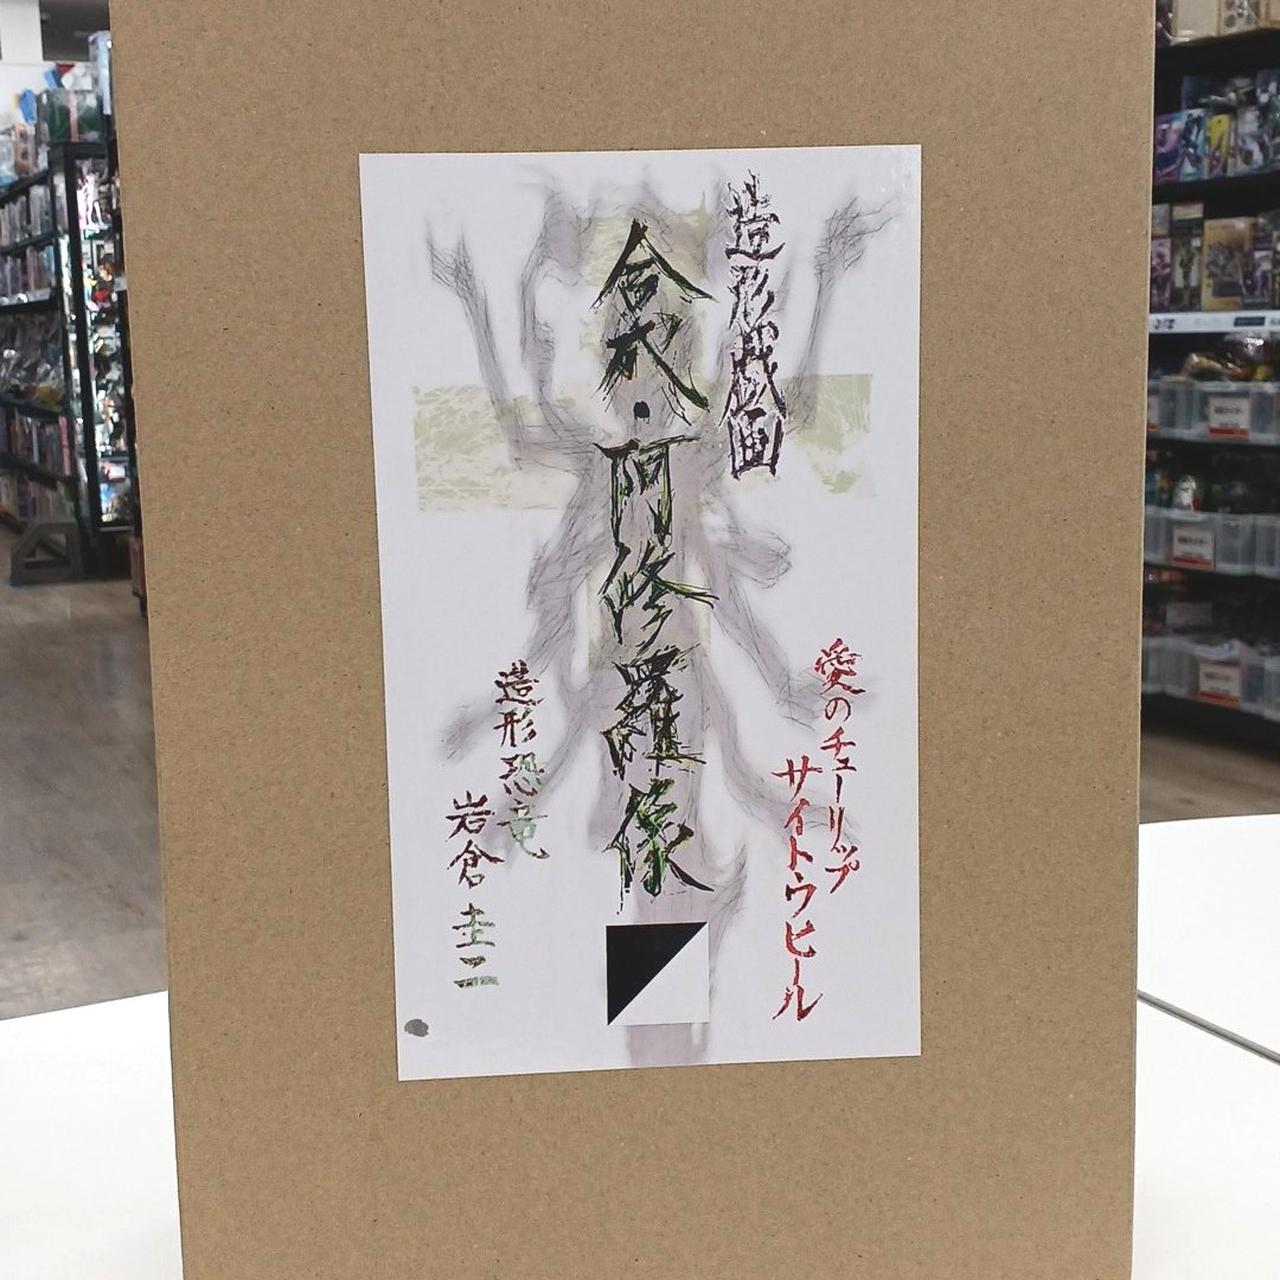 造形戯画
合弐・阿修羅像
愛のチューリップ
サイトウヒール
造形恐竜
岩倉圭二